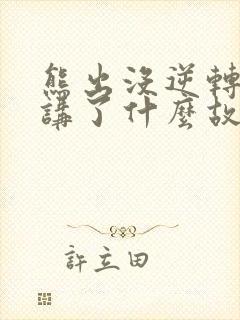 熊出沒逆轉
講了什麼故
許立田